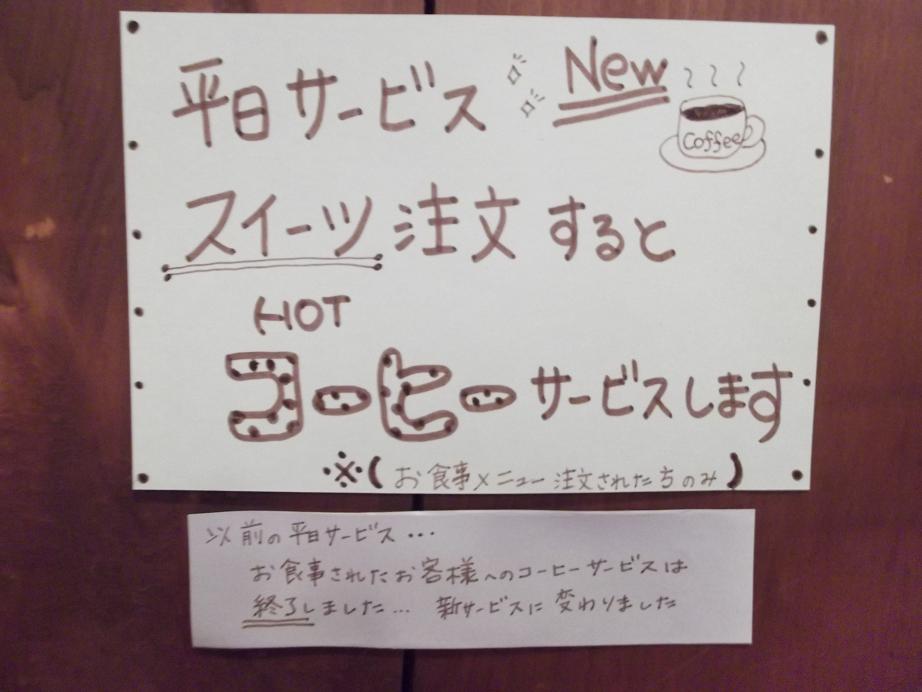 平日サービス New
Coffee
スイーツ注文すると
HOT
コーヒーサービスします
※(お食事メニュー注文された方のみ)
以前の平日サービス・・・
お食事されたお客様へのコーヒーサービスは
終了しました… 新サービスに変わりました